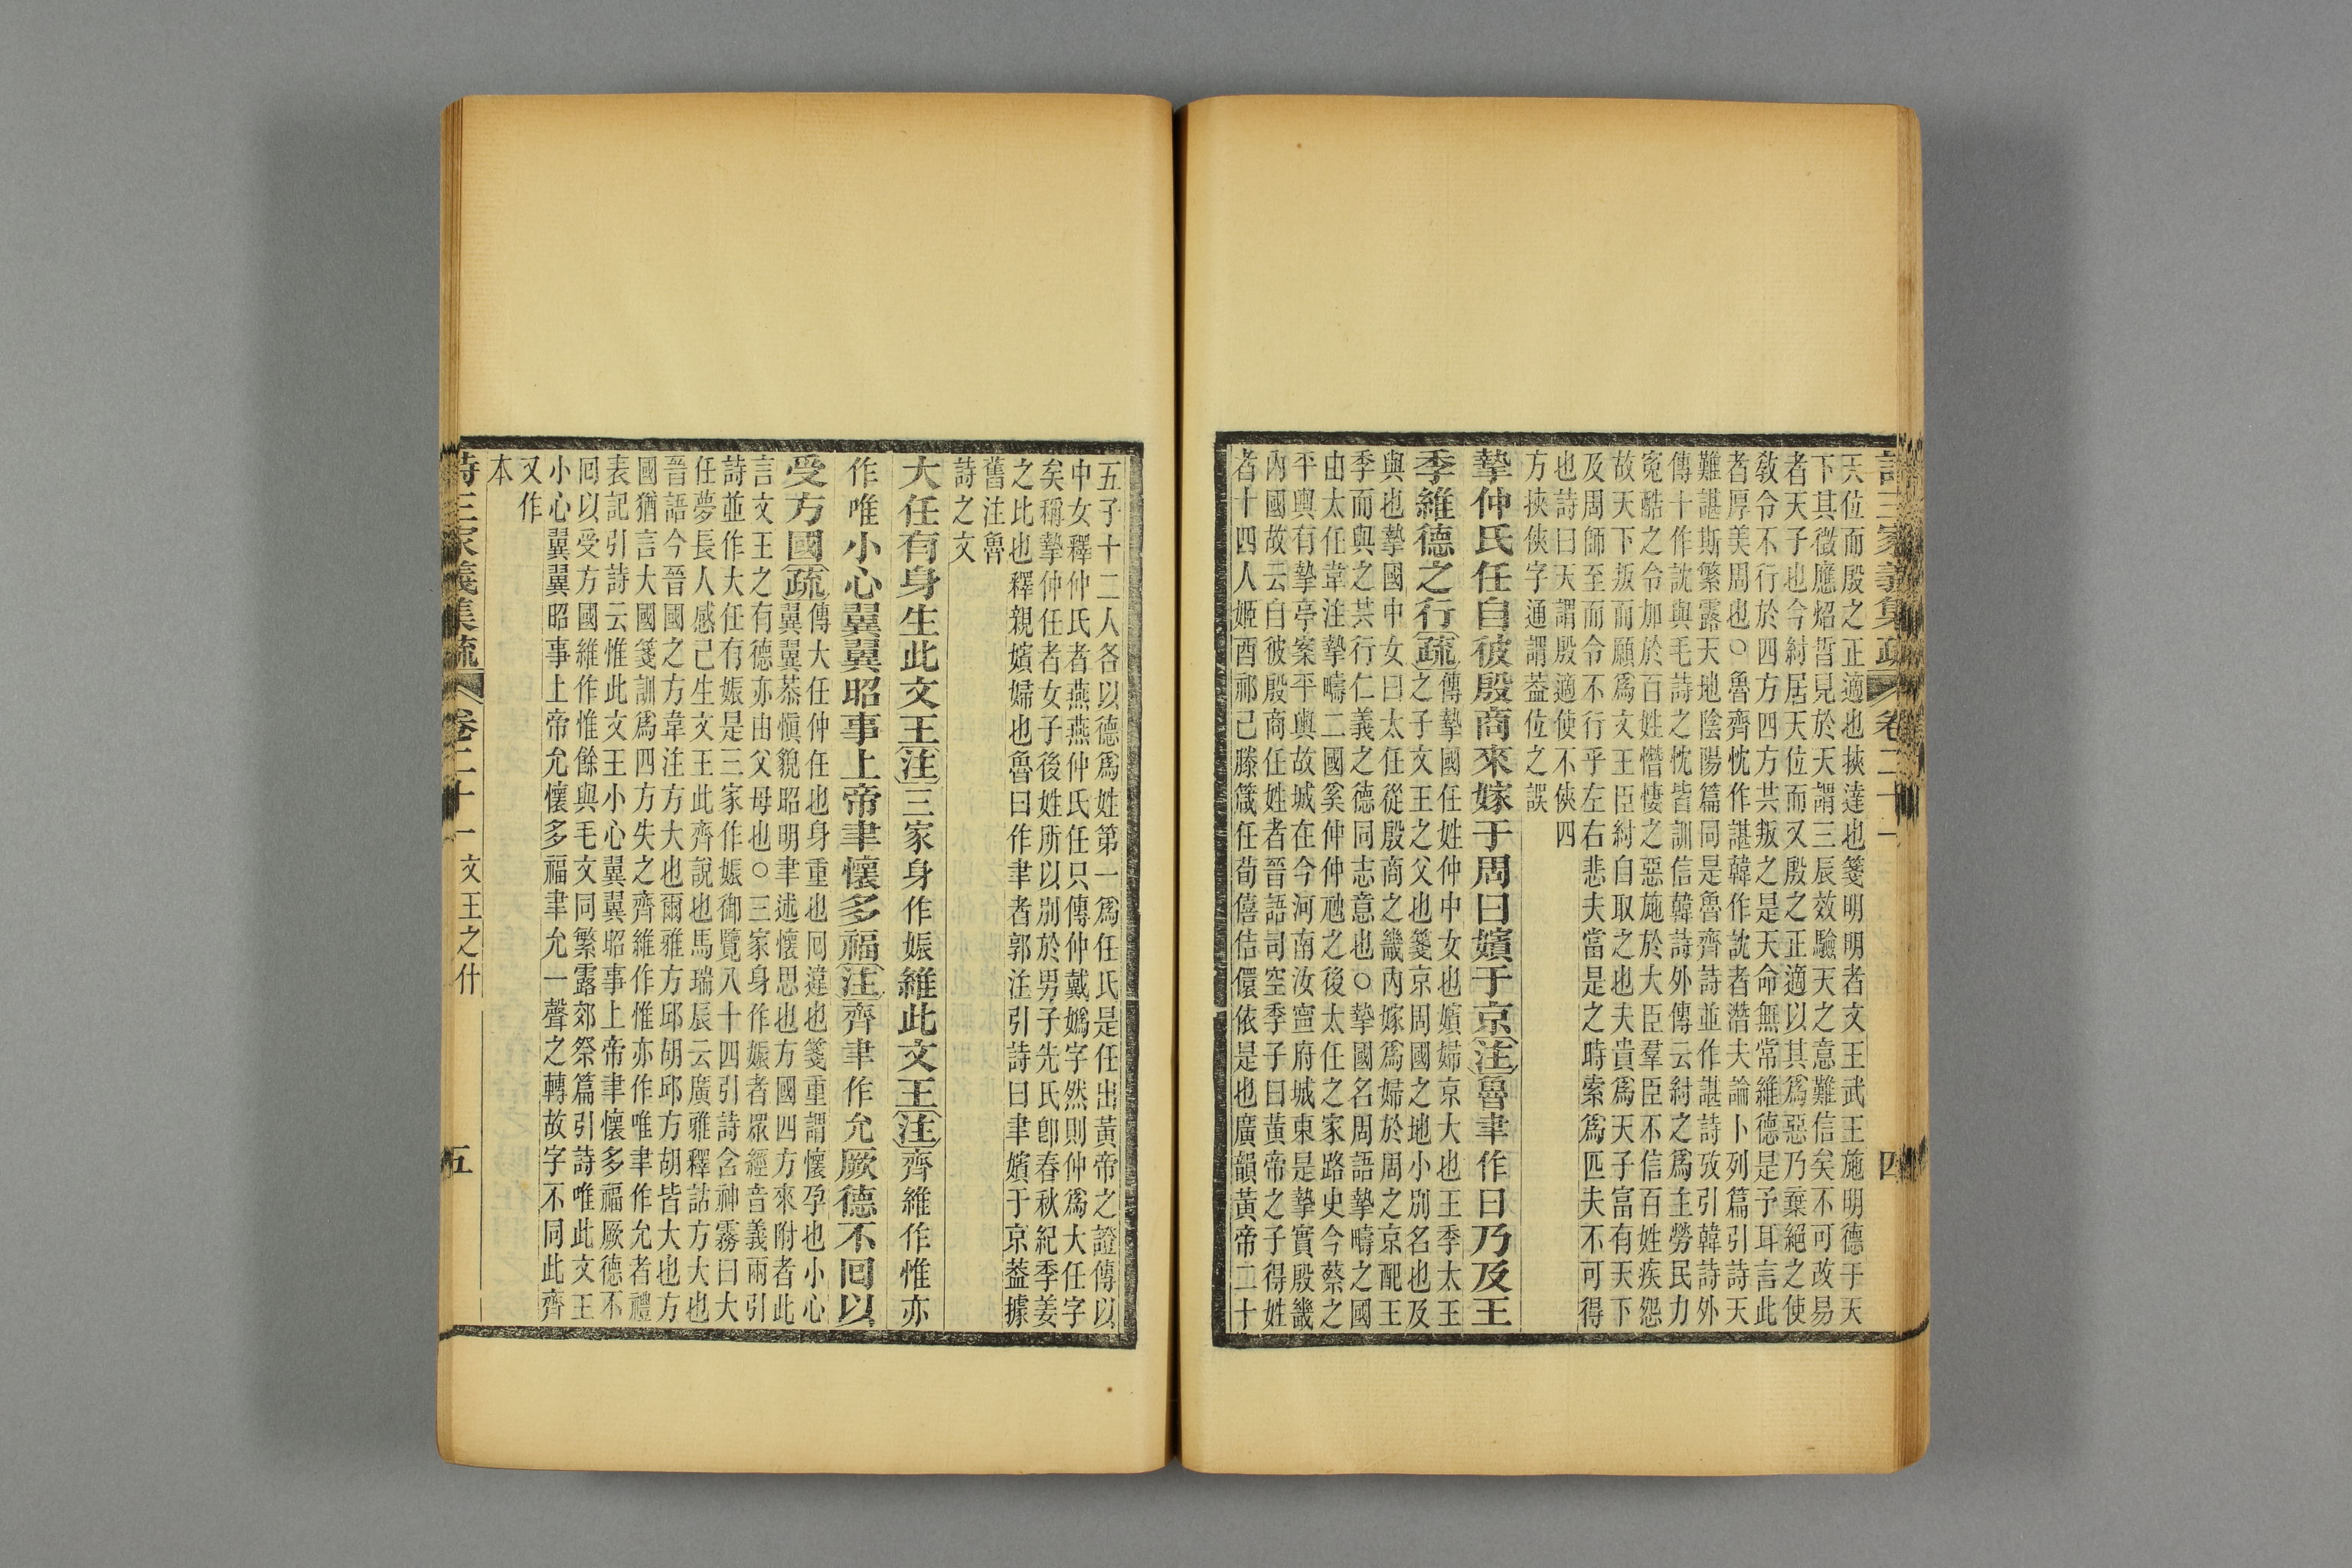 詩三家義集疏 卷二十一 四
天位而殷之正適也挾達也箋明明者文王武王施明德于天
下其徵應炤晢見於天謂三辰效驗天之意難信矣不可改易
者天子也今紂居天位而又殷之正適以其爲惡乃棄絕之使
敎令不行於四方四方共叛之是天命無常維德是予耳言此
者厚美周也○魯齊忱作諶韓作訦者潛夫論卜列篇引詩天
難諶斯繁露天地陰陽篇同是魯齊詩並作諶詩攷引韓詩外
傳十作訦與毛詩之忱皆訓信韓詩外傳云紂之爲主勞民力
冤酷之令加於百姓憯悽之惡施於大臣羣臣不信百姓疾怨
故天下叛而願爲文王臣紂自取之也夫貴爲天子富有天下
及周師至而令不行乎左右悲夫當是之時索爲匹夫不可得
也詩曰天謂殷適使不俠四
方挾俠字通謂葢位之誤
摯仲氏任自彼殷商來嫁于周曰嬪于京注魯聿作曰乃及王
季維德之行疏傳摯國任姓仲中女也嬪婦京大也王季太王
之子文王之父也箋京周國之地小別名也及
與也摯國中女曰太任從殷商之畿內嫁爲婦於周之京配王
季而與之共行仁義之德同志意也○摯國名周語摯疇之國
由太任韋注摯疇二國奚仲仲虺之後太任之家路史今蔡之
平輿有摯亭案平輿故城在今河南汝寍府城東是摯實殷畿
內國故云自彼殷商任姓者晉語司空季子曰黃帝之子得姓
者十四人姬酉祁己滕箴任荀僖佶儇依是也廣韻黃帝二十
五子十二人各以德爲姓第一爲任氏是任出黃帝之證傳以
中女釋仲氏者燕燕仲氏任只傳仲戴嬀字然則仲爲大任字
矣稱摯仲任者女子後姓所以別於男子先氏卽春秋紀季姜
之比也釋親嬪婦也魯曰作聿者郭注引詩曰聿嬪于京葢據
舊注魯
詩之文
大任有身生此文王注三家身作娠維此文王注齊維作惟亦
作唯小心翼翼昭事上帝聿懷多福注齊聿作允厥德不回以
受方國疏傳大任仲任也身重也回違也箋重謂懷孕也小心
翼翼恭愼貌昭明聿述懷思也方國四方來附者此
言文王之有德亦由父母也○三家身作娠者眾經音義兩引
詩並作大任有娠是三家作娠御覽八十四引詩含神霧曰大
任夢長人感己生文王此齊說也馬瑞辰云廣雅釋詁方大也
晉語今晉國之方韋注方大也爾雅方邱胡邱方胡皆大也方
國猶言大國箋訓爲四方失之齊維作惟亦作唯聿作允者禮
表記引詩云惟此文王小心翼翼昭事上帝聿懷多福厥德不
回以受方國維作惟餘與毛文同繁露郊祭篇引詩唯此文王
小心翼翼昭事上帝允懷多福聿允一聲之轉故字不同此齊
又作
本
詩三家義集疏 卷二十一 文王之什 五